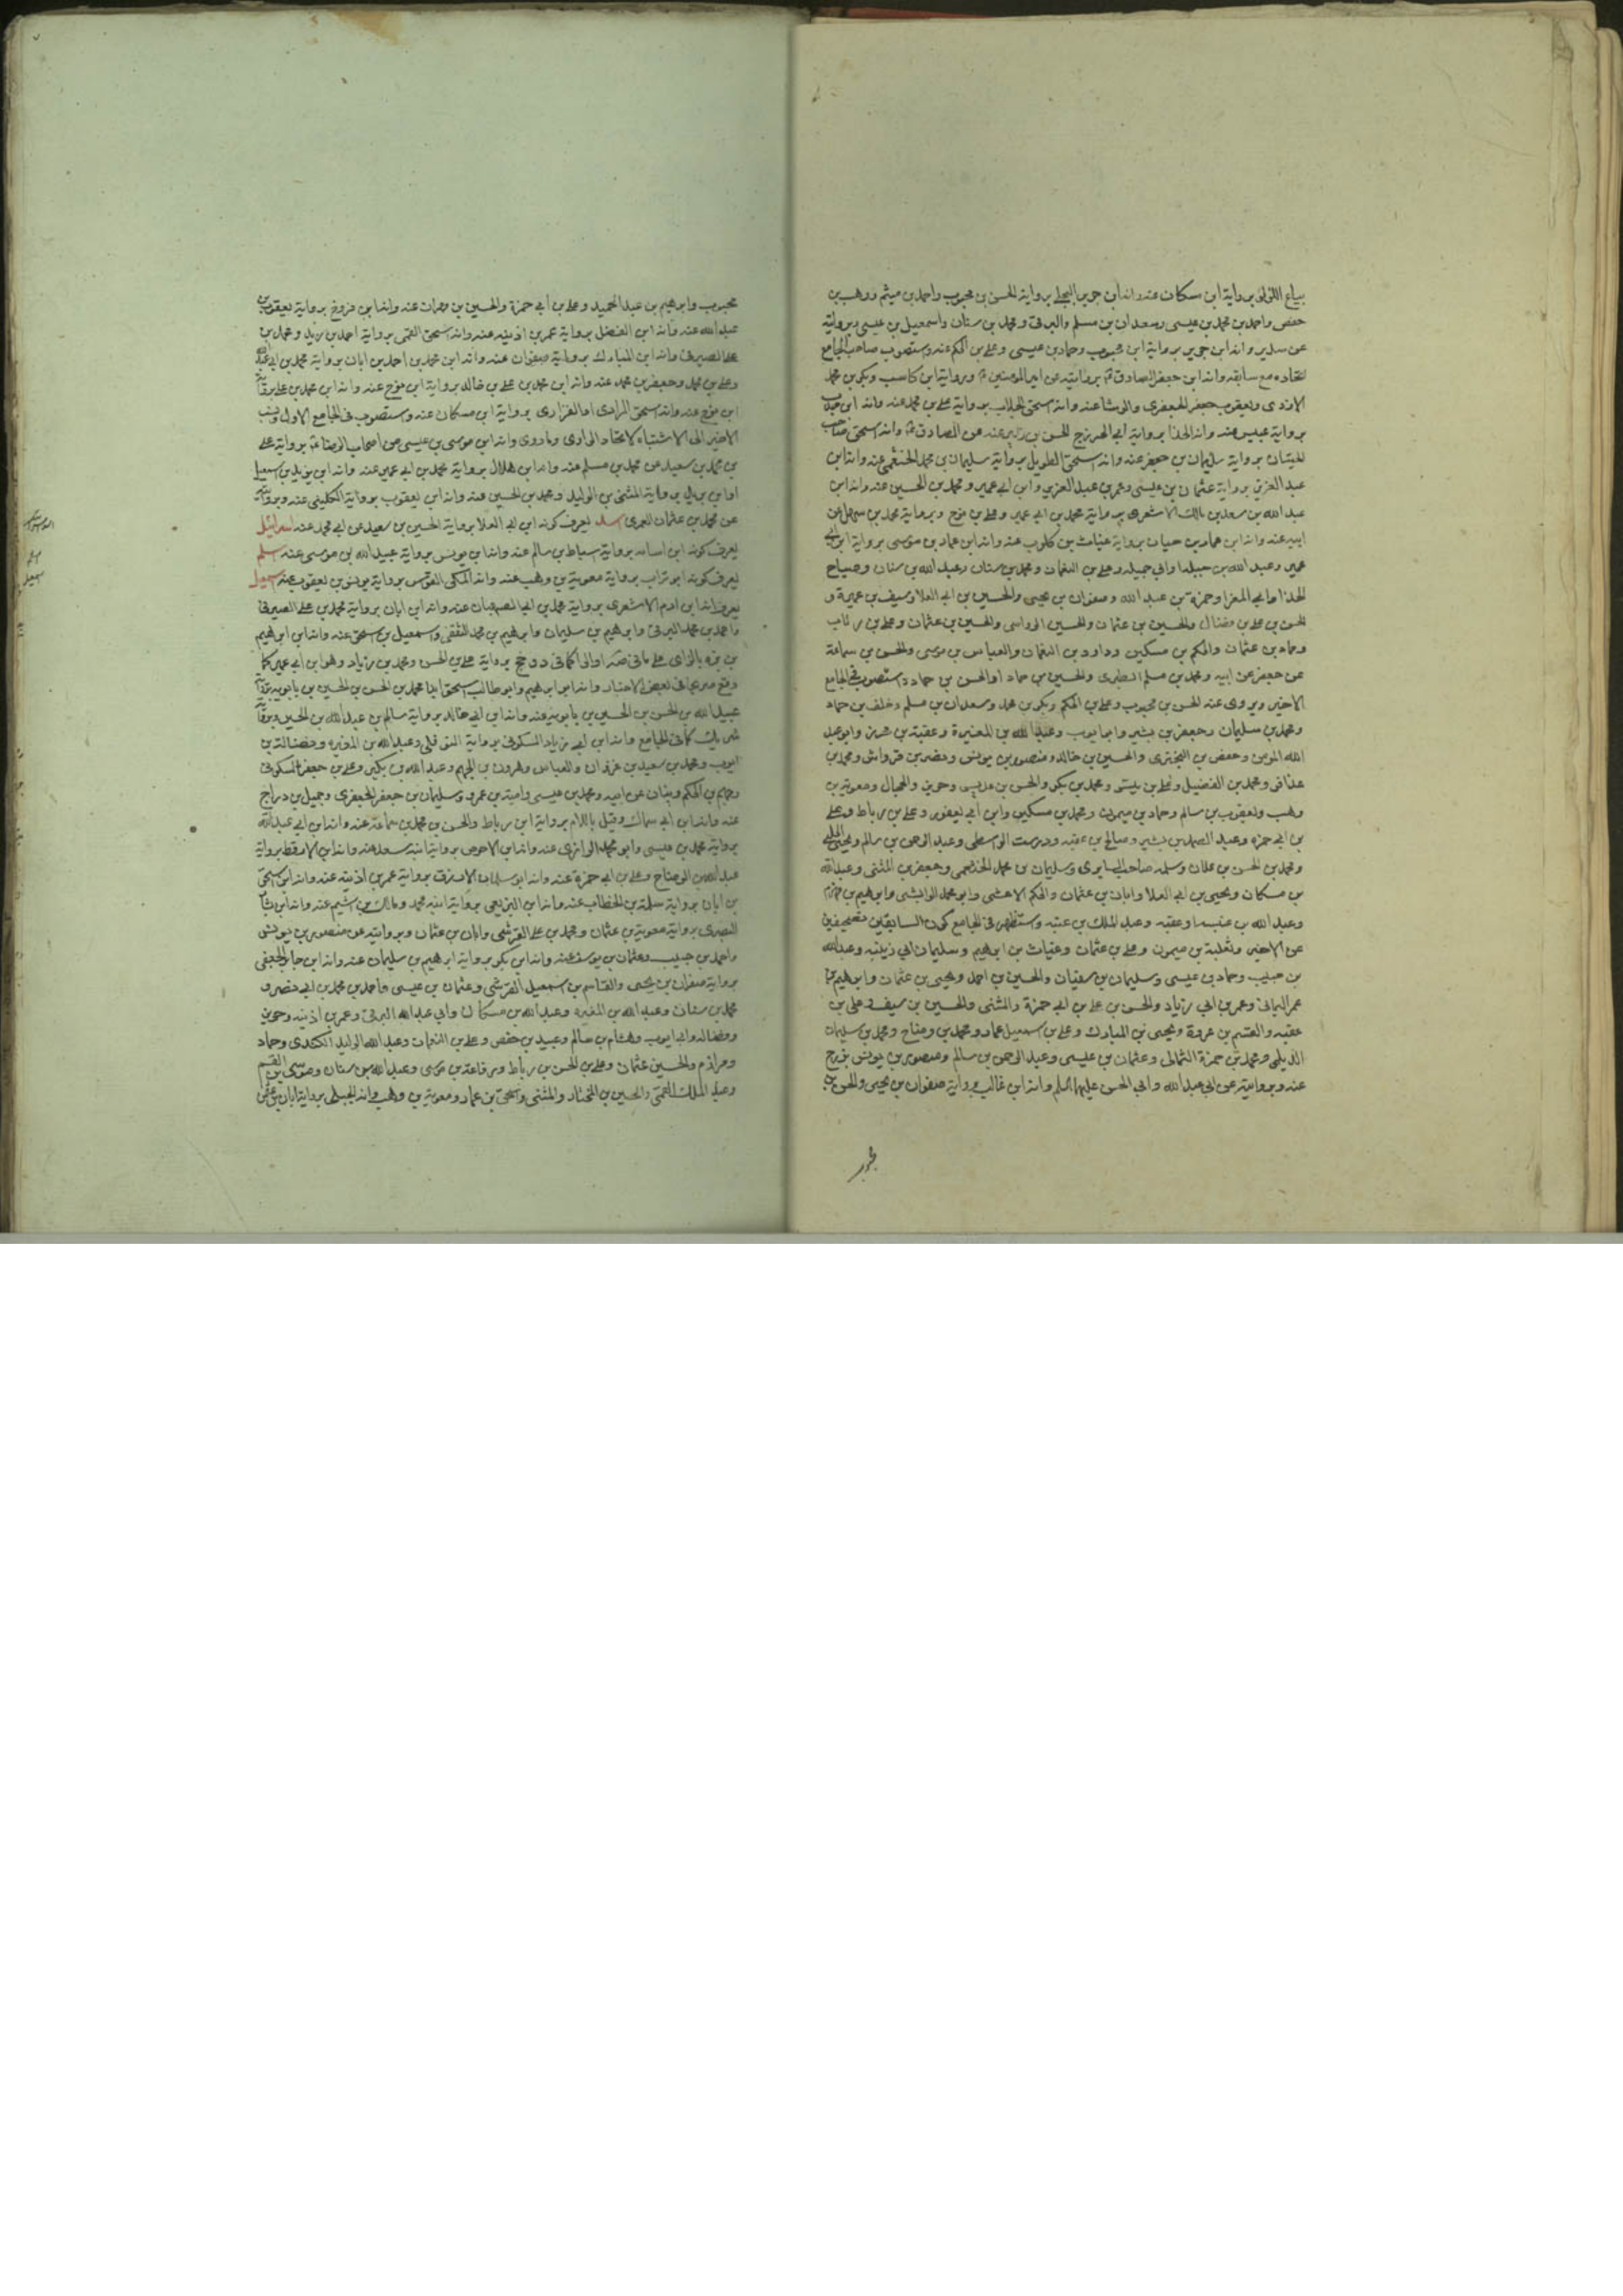 بياع اللؤلؤ برواية ابن مسكان عنه وانه ابن جرير البجلي برواية الحسن بن محبوب واحمد بن ميثم ووهيب بن
حفص واحمد بن محمد بن عيسى وسعدان بن مسلم والبرقي ومحمد بن سنان واسمعيل بن عيسى وبروايته
عن سدير وانه ابن جرير برواية ابن محبوب وحماد بن عيسى وعلي بن الحكم عنه واستصوب صاحب الجامع
اتحاده مع سابقه وانه ابن جعفر الصادق بروايته عن امير المؤمنين وبرواية ابن كاسب وبكر بن محمد
الازدي ويعقوب بن جعفر الجعفري والوشا عنه وانه اسحق الجلاب برواية علي بن محمد عنه وانه ابن
برواية عبيس عنه وانه الحذا برواية ابي الخزرج الحسن بن عنه عن الصادق وانه اسحق صاحب
الحيتان برواية سليمان بن جعفر عنه وانه اسحق الطويل برواية سليمان بن محمد الخثعمي عنه وانه ابن
عبد العزيز برواية عثمان بن عيسى وعمر بن عبد العزيز وابن ابي عمير ومحمد بن الحسين عنه وانه ابن
عبد الله بن سعد بن مالك الاشعري برواية محمد بن ابي عمير وعلي بن وبرواية محمد بن سهل عن
ابيه عنه وانه ابن عمار بن حيان برواية غياث بن كلوب عنه وانه ابن عمار بن موسى برواية ابن ابي
عمير وعبد الله بن جبلة وابي جميلة وعلي بن النعمان ومحمد بن سنان وعبد الله بن سنان وصباح
الحذا وابي المغرا وحمزة بن عبد الله وصفوان بن يحيى والحسين بن ابي العلا وسيف بن عميرة و
الحسن بن علي بن فضال والحسين بن عثمان والحسين الرواسي والحسين بن عثمان وعلي بن رئاب
وحماد بن عثمان والحكم بن مسكين وداود بن النعمان والعباس بن موسى والحسن بن سماعة
عن جعفر عن ابيه ومحمد بن مسلم والحسين بن حماد او الحسن بن حماد واستصوب في الجامع
الاخير ويروي عنه الحسن بن محبوب وعلي بن الحكم وبكر بن محمد وسعدان بن مسلم وخلف بن حماد
ومحمد بن سليمان وجعفر بن بشير وابو ايوب وعبد الله بن المغيرة وعقبة بن محرز وابو عبد
الله المومن وحفص بن البختري والحسين بن خالد ومنصور بن يونس ونضر بن قرواش ومحمد بن
عذافر ومحمد بن الفضيل وعلي بن ومحمد بن بكر والحسن بن وحريز والمحامل ومعوية بن
وهب ويعقوب بن سالم وحماد بن ميمون ومحمد بن مسكين وابن ابي يعفور وعلي بن رباط وعلي
بن ابي حمزة وعبد الصمد بن بشير وصالح بن عقبة ودرست الواسطي وعبد الرحمن بن سالم ويحيى الحلبي
ومحمد بن الحسن بن علان وسلمة صاحب السابري وسليمان بن محمد الخثعمي وجعفر بن المثنى وعبد الله
بن مسكان ويحيى بن ابي العلا وابان بن عثمان والحكم الاعشى وابو محمد الوابشي وابرهيم بن مهزم
وعبد الله بن عنبسة او عقبة وعبد الملك بن عتبة واستظهر في الجامع كون السابقين تصحيفين
عن الاخير وثعلبة بن ميمون وعلي بن عثمان وغياث بن ابرهيم وسليمان ابي زينبه وعبد الله
بن حبيب وحماد بن عيسى وسليمان بن سفيان والحسين بن احمد ويحيى بن عثمان وابرهيم بن
عمر اليماني وعمر بن ابي زياد والحسن بن علي بن ابي حمزة والمثنى والحسين بن سيف وعلي بن
عقبة والقسم بن عروة ويحيى بن المبارك وعلي بن اسمعيل بن عمار ومحمد بن وضاح ومحمد بن سليمان
الديلمي ومحمد بن حمزة الثمالي وعثمان بن عيسى وعبد الرحمن بن سالم ومنصور بن يونس بزرج
عنه وبروايته عن ابي عبد الله وابي الحسن عليهما السلم وانه ابن غالب برواية صفوان بن يحيى والحسن بن
محبوب
محبوب وابرهيم بن عبد الحميد وعلي بن ابي حمزة والحسين بن مهران عنه وانه ابن فروخ برواية يعقوب بن
عبد الله عنه وانه ابن الفضل برواية عمر بن اذينه عنه وانه اسحق القمي برواية احمد بن زيد ومحمد بن
علي الصيرفي وانه ابن المبارك برواية صفوان عنه وانه ابن محمد بن احمد بن ابان برواية محمد بن ابي عبد الله
وعلي بن محمد وجعفر بن محمد عنه وانه ابن محمد بن علي بن خالد برواية ابن نوح عنه وانه ابن محمد بن علي برواية
ابن نوح عنه وانه اسحق المرادي او الفزاري برواية ابن مسكان عنه واستصوب في الجامع الاول ونسب
الاخير الى الاشتباه لاتحاد الراوي وما روى وانه ابن موسى بن عيسى من اصحاب الرضا برواية علي
بن محمد بن سعيد عن محمد بن مسلم عنه وانه ابن هلال برواية محمد بن ابي عمير عنه وانه ابن يزيد بن اسمعيل
او ابن بريد برواية المثنى بن الوليد ومحمد بن الحسين عنه وانه ابن يعقوب برواية الكليني عنه وبروايته
عن محمد بن عثمان العمري اسد يعرف كونه ابن ابي العلا برواية الحسين بن سعيد عن ابي محمد عنه اسرائيل
يعرف كونه ابن اسامه برواية اسباط بن سالم عنه وانه ابن يونس برواية عبيد الله بن موسى عنه اسلم
يعرف كونه ابو تراب برواية معوية بن وهب عنه وانه المكي القواس برواية يونس بن يعقوب عنه اسمعيل
يعرف انه ابن ادم الاشعري برواية محمد بن ابي الصهبان عنه وانه ابن ابان برواية محمد بن علي الصيرفي
واحمد بن محمد البرقي وابرهيم بن سليمان وابرهيم بن محمد الثقفي واسمعيل بن اسحق عنه وانه ابن ابرهيم
بن بزه بالزاي على ما في صه او الرا كما في د و جخ برواية علي بن الحسن ومحمد بن زياد وهو ابن ابي عمير كما
وقع صريحا في بعض الاخبار وانه ابن ابرهيم وابو طالب اسحق ابنا محمد بن الحسن بن الحسين بن بابويه برواية
عبيد الله بن الحسن بن الحسين بن بابويه عنه وانه ابن ابي خالد برواية سالم بن عبد الله بن الحسين وبرواية
شريك كما في الجامع وانه ابن ابي زياد السكوني برواية النوفلي وعبد الله بن المغيرة وفضالة بن
ايوب ومحمد بن سعيد بن غزوان والعباس وهرون بن الجهم وعبد الله بن بكير وعلي بن جعفر السكوني
وجهم بن الحكم وبنان عن ابيه ومحمد بن عيسى وامية بن عمرو وسليمان بن جعفر الجعفري وجميل بن دراج
عنه وانه ابن ابي سماك وقيل باللام برواية ابن رباط والحسن بن محمد بن سماعة عنه وانه ابن ابي عبد الله
برواية محمد بن عيسى وابو محمد الرازي عنه وانه ابن الاحوص برواية ابنه سعد عنه وانه ابن الارقط برواية
عبد الله بن الوضاح وعلي بن ابي حمزة عنه وانه ابو سليمان الازرق برواية عمر بن اذينه عنه وانه ابن اسحق
بن ابان برواية سلمة بن الخطاب عنه وانه ابن البزيعي برواية ابنه محمد ومالك بن اشيم عنه وانه ابن
البصري برواية معوية بن عثمان ومحمد بن علي القرشي وابان بن عثمان وبروايته عن منصور بن يونس
واحمد بن حبيب وعثمان بن يوسف عنه وانه ابن بكر برواية ابرهيم بن سليمان عنه وانه ابن جابر الجعفي
برواية صفوان بن يحيى والقاسم بن اسمعيل القرشي وعثمان بن عيسى واحمد بن محمد بن ابي نصر و
محمد بن سنان وعبد الله بن المغيرة وعبد الله بن مسكان وابي عبد الله البرقي وعمر بن اذينه وحريز
وفضاله وابي ايوب وهشام بن سالم وعبيد بن حفص وعلي بن النعمان وعبد الله الوليد الكندي وحماد
ومرازم والحسين بن عثمان وعلي بن الحسن بن رباط ورفاعة بن موسى وعبد الله بن سنان وموسى بن القسم
وعبد الملك القمي والحسين بن المختار والمثنى واسحق بن عمار ومعوية بن وهب وانه الجبلي برواية ابان بن عثمان